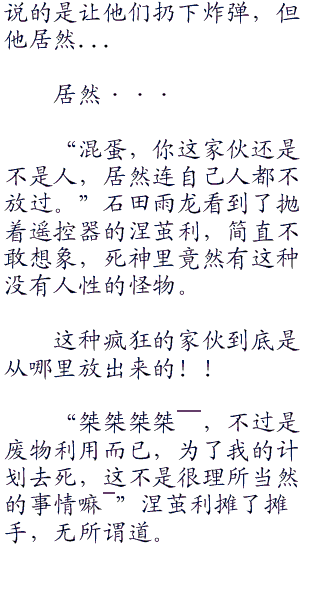 说的是让他们扔下炸弹，但
他居然...
居然···
“混蛋，你这家伙还是
不是人，居然连自己人都不
放过。”石田雨龙看到了抛
着遥控器的涅茧利，简直不
敢想象，死神里竟然有这种
没有人性的怪物。
这种疯狂的家伙到底是
从哪里放出来的！！
“桀桀桀桀￣￣，不过是
废物利用而已，为了我的计
划去死，这不是很理所当然
的事情嘛￣”涅茧利摊了摊
手，无所谓道。